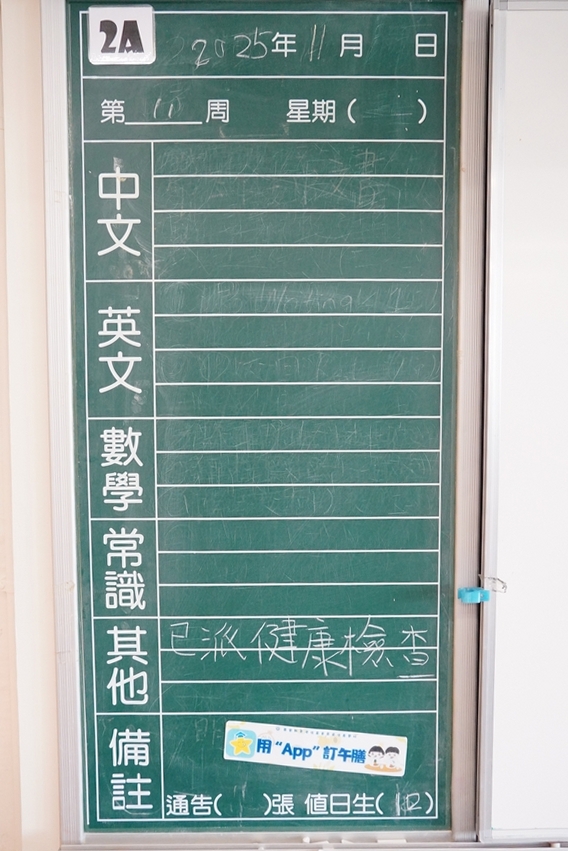 2A
2025年 11月 日
第 11 周 星期( )
中文
英文
數學
常識
其他 已派健康檢查
備註
用“App”訂午膳
通告( )張 值日生(12)